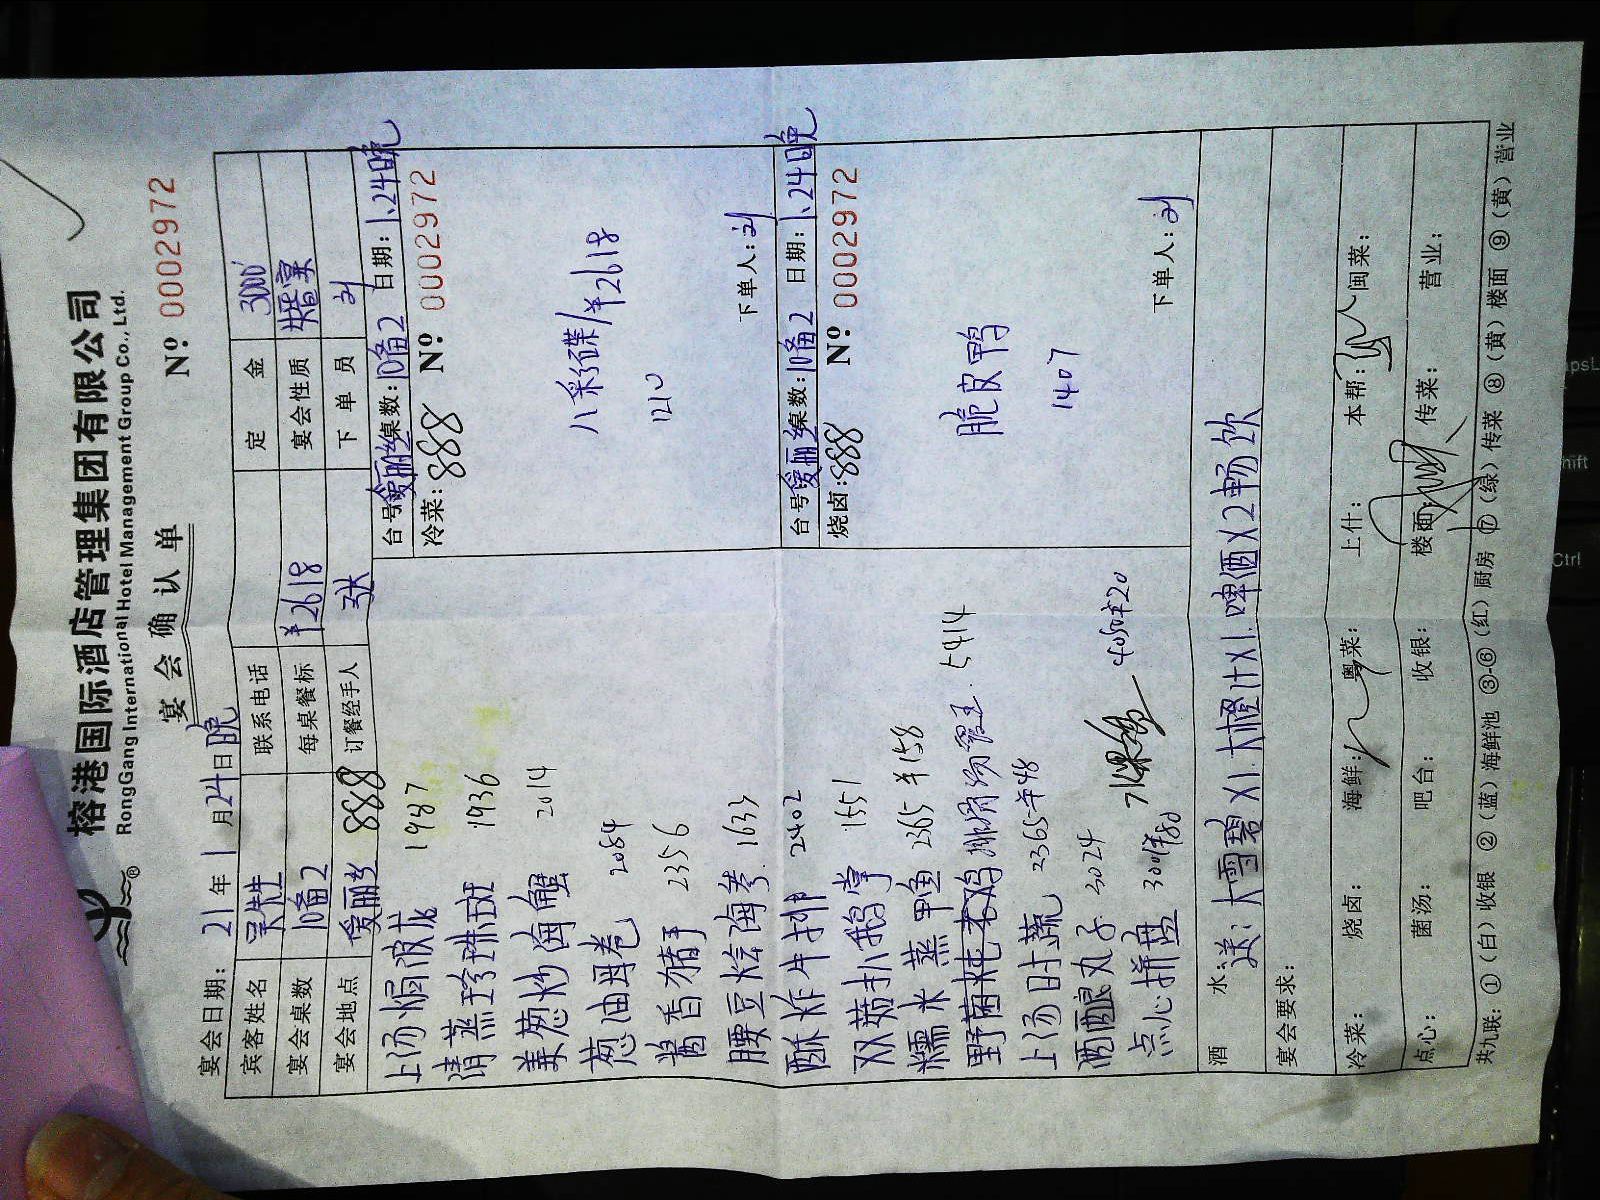 榕港国际酒店管理集团有限公司
RongGang International Hotel Management Group Co., Ltd.
宴会确认单
№ 0002972
宴会日期: 21年1月24日晚
宾客姓名 吴先生 联系电话 定金 3000
宴会桌数 10备2 每桌餐标 ¥2618 宴会性质 婚宴
宴会地点 爱丽丝 888 订餐经手人 张 下单员 刘
上汤焗波龙 1987
清蒸珍珠斑 1936
姜葱炒海蟹 2014
葱油毋卷 2084
酱香猪手 2356
腰豆烩海参 1633
酥炸牛排 2402
双菇扒鹅掌 1551
糯米蒸甲鱼 2365 羊158
野菌炖老鸡 5414
上汤时蔬 2365-羊48
酒酿丸子 3024
点心拼盘 3009羊80
4050羊20
台号: 爱丽丝 桌数: 10备2 日期: 1.24晚
冷菜: 888 № 0002972
八彩碟/¥2618
1210
下单人: 刘
台号: 爱丽丝 桌数: 10备2 日期: 1.24晚
烧卤: 888 № 0002972
脆皮鸭
1407
下单人: 刘
酒水: 送: 大雪碧X1.大橙汁X1.啤酒X2畅饮
宴会要求:
冷菜: 烧卤: 海鲜: 粤菜: 上什: 本帮: 闽菜:
点心: 菌汤: 吧台: 收银: 楼面: 传菜: 营业:
共九联: ①(白)收银 ②(蓝)海鲜池 ③-⑥(红)厨房 ⑦(绿)传菜 ⑧(黄)楼面 ⑨(黄)营业